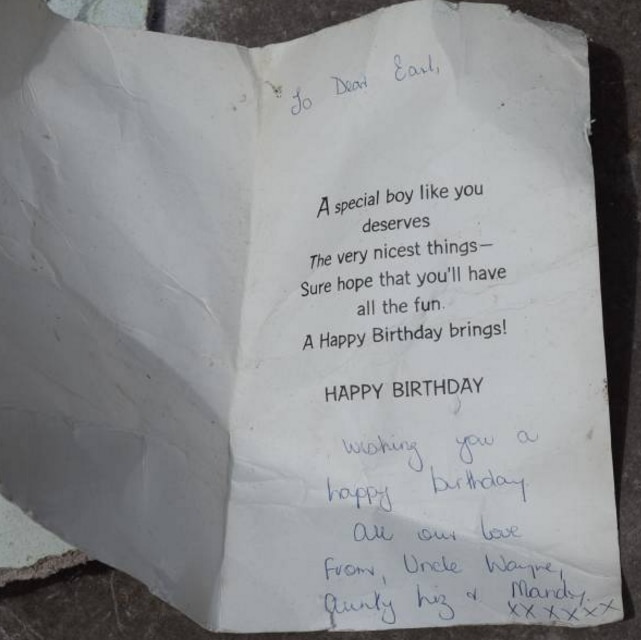 To Dear Earl,
A special boy like you
deserves
The very nicest things—
Sure hope that you'll have
all the fun.
A Happy Birthday brings!
HAPPY BIRTHDAY
Wishing you a
happy birthday
All our love
From, Uncle Wayne,
Aunty Liz & Mandy.
XXXXXX